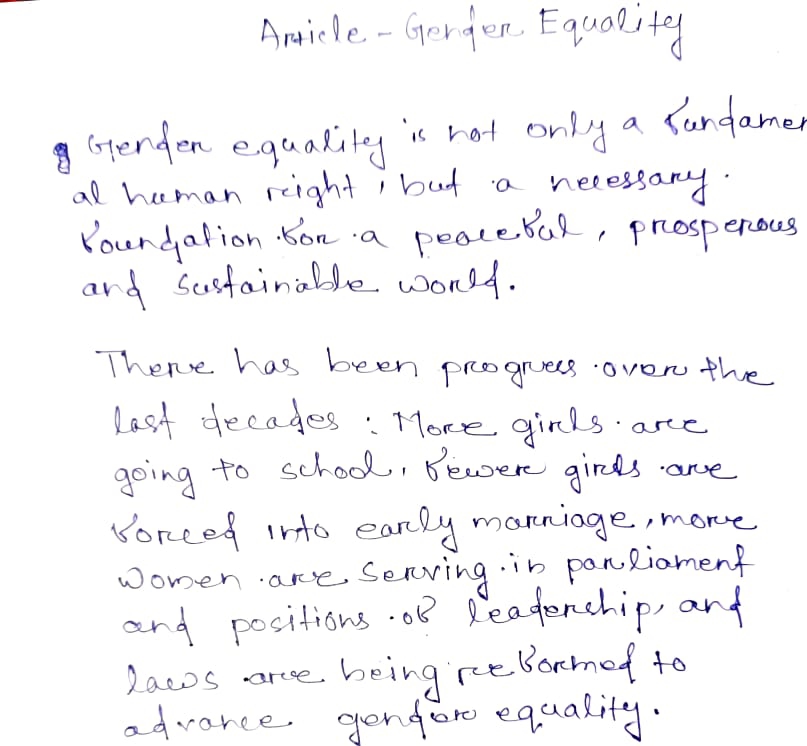 Article - Gender Equality
Gender equality is not only a fundamen
al human right, but a necessary
foundation for a peaceful, prosperous
and sustainable world.
There has been progress over the
last decades : More girls are
going to school, fewer girls are
forced into early marriage, more
women are serving in parliament
and positions of leadership, and
laws are being reformed to
advance gender equality.